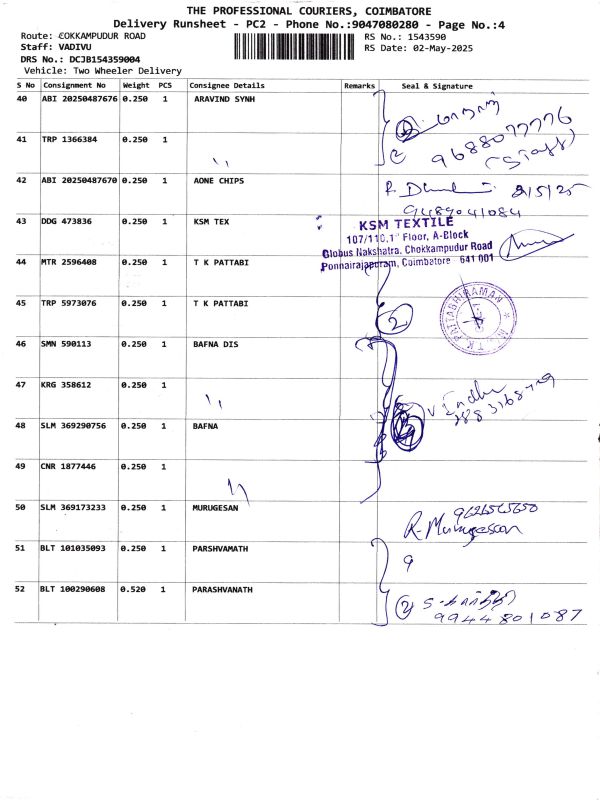 THE PROFESSIONAL COURIERS, COIMBATORE
Delivery Runsheet - PC2 - Phone No.:9047080280 - Page No.:4
Route: COKKAMPUDUR ROAD RS No.: 1543590
Staff: VADIVU RS Date: 02-May-2025
DRS No.: DCJB154359004
Vehicle: Two Wheeler Delivery
S No Consignment No Weight PCS Consignee Details Remarks Seal & Signature
40 ABI 20250487676 0.250 1 ARAVIND SYNH
41 TRP 1366384 0.250 1 〃
9688077776
(Staff)
42 ABI 20250487670 0.250 1 AONE CHIPS
2/5/25
9489041084
43 DDG 473836 0.250 1 KSM TEX
KSM TEXTILE
107/110,1st Floor, A-Block
Globus Nakshatra, Chokkampudur Road
Ponnairajapuram, Coimbatore - 641 001
44 MTR 2596408 0.250 1 T K PATTABI
45 TRP 5973076 0.250 1 T K PATTABI
2
T.K. PATTABHIRAMAN
46 SMN 590113 0.250 1 BAFNA DIS
47 KRG 358612 0.250 1 〃
V Indhu
48 SLM 369290756 0.250 1 BAFNA
49 CNR 1877446 0.250 1 〃
50 SLM 369173233 0.250 1 MURUGESAN
9626565650
R. Murugesan
51 BLT 101035093 0.250 1 PARSHVAMATH
52 BLT 100290608 0.520 1 PARASHVANATH
9944801087